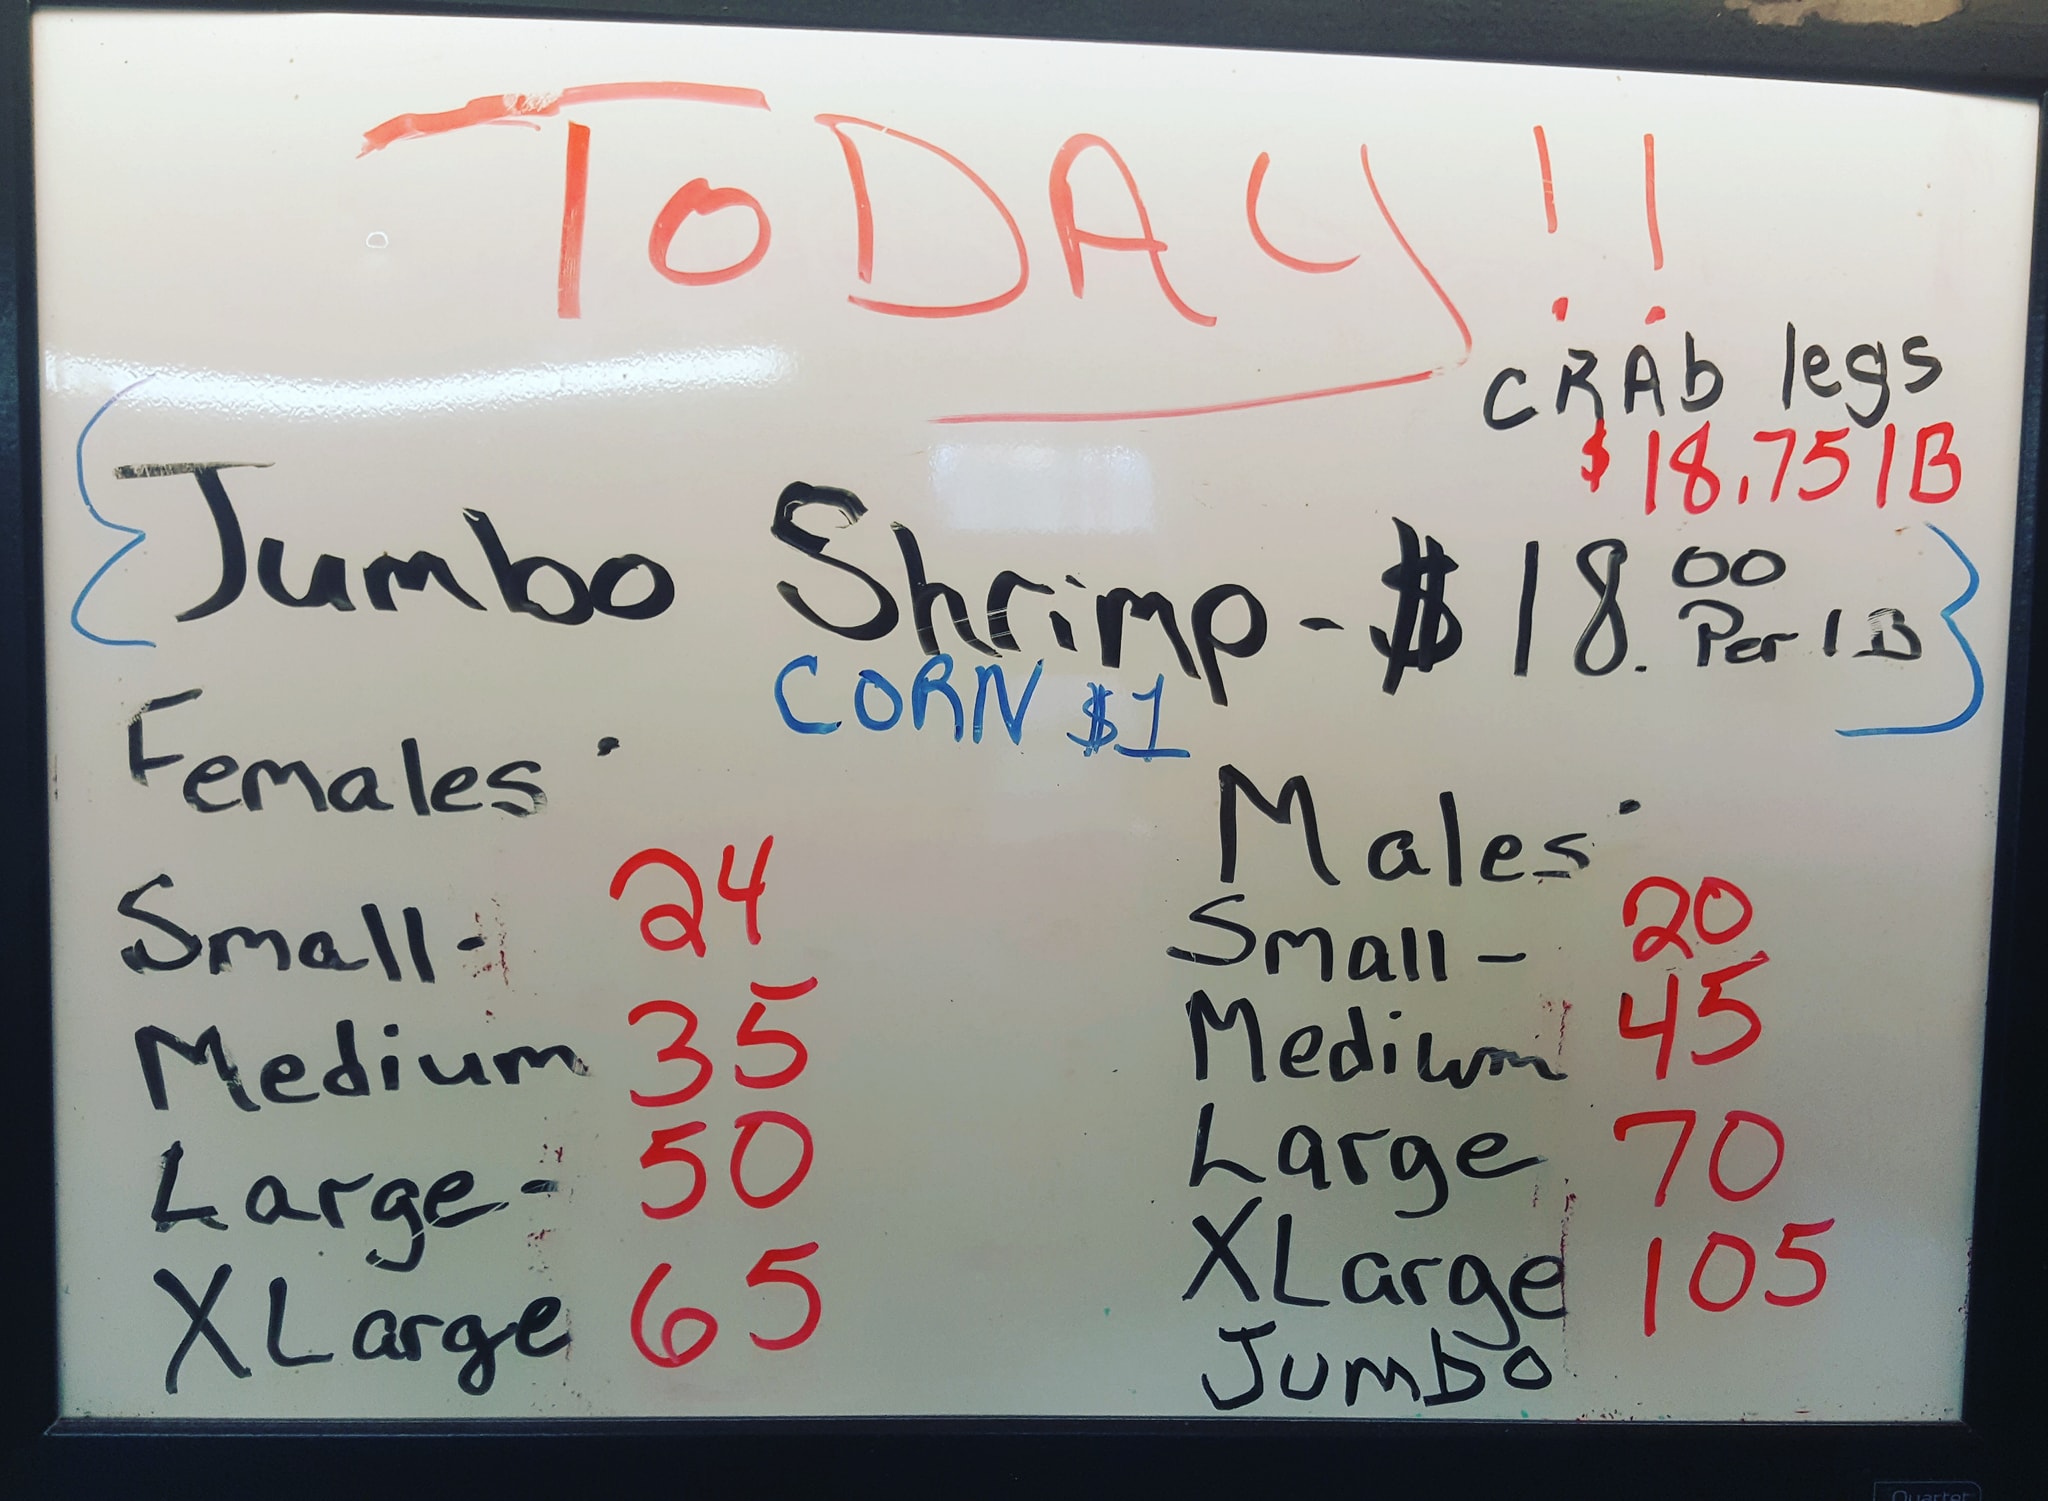 TODAY!!
CRAb legs
$18.75 1B
Jumbo Shrimp - $18.00 Per 1B
CORN $1
Females:
Small - 24
Medium 35
Large - 50
XLarge 65
Males:
Small - 20
Medium 45
Large 70
XLarge 105
Jumbo
Quartet